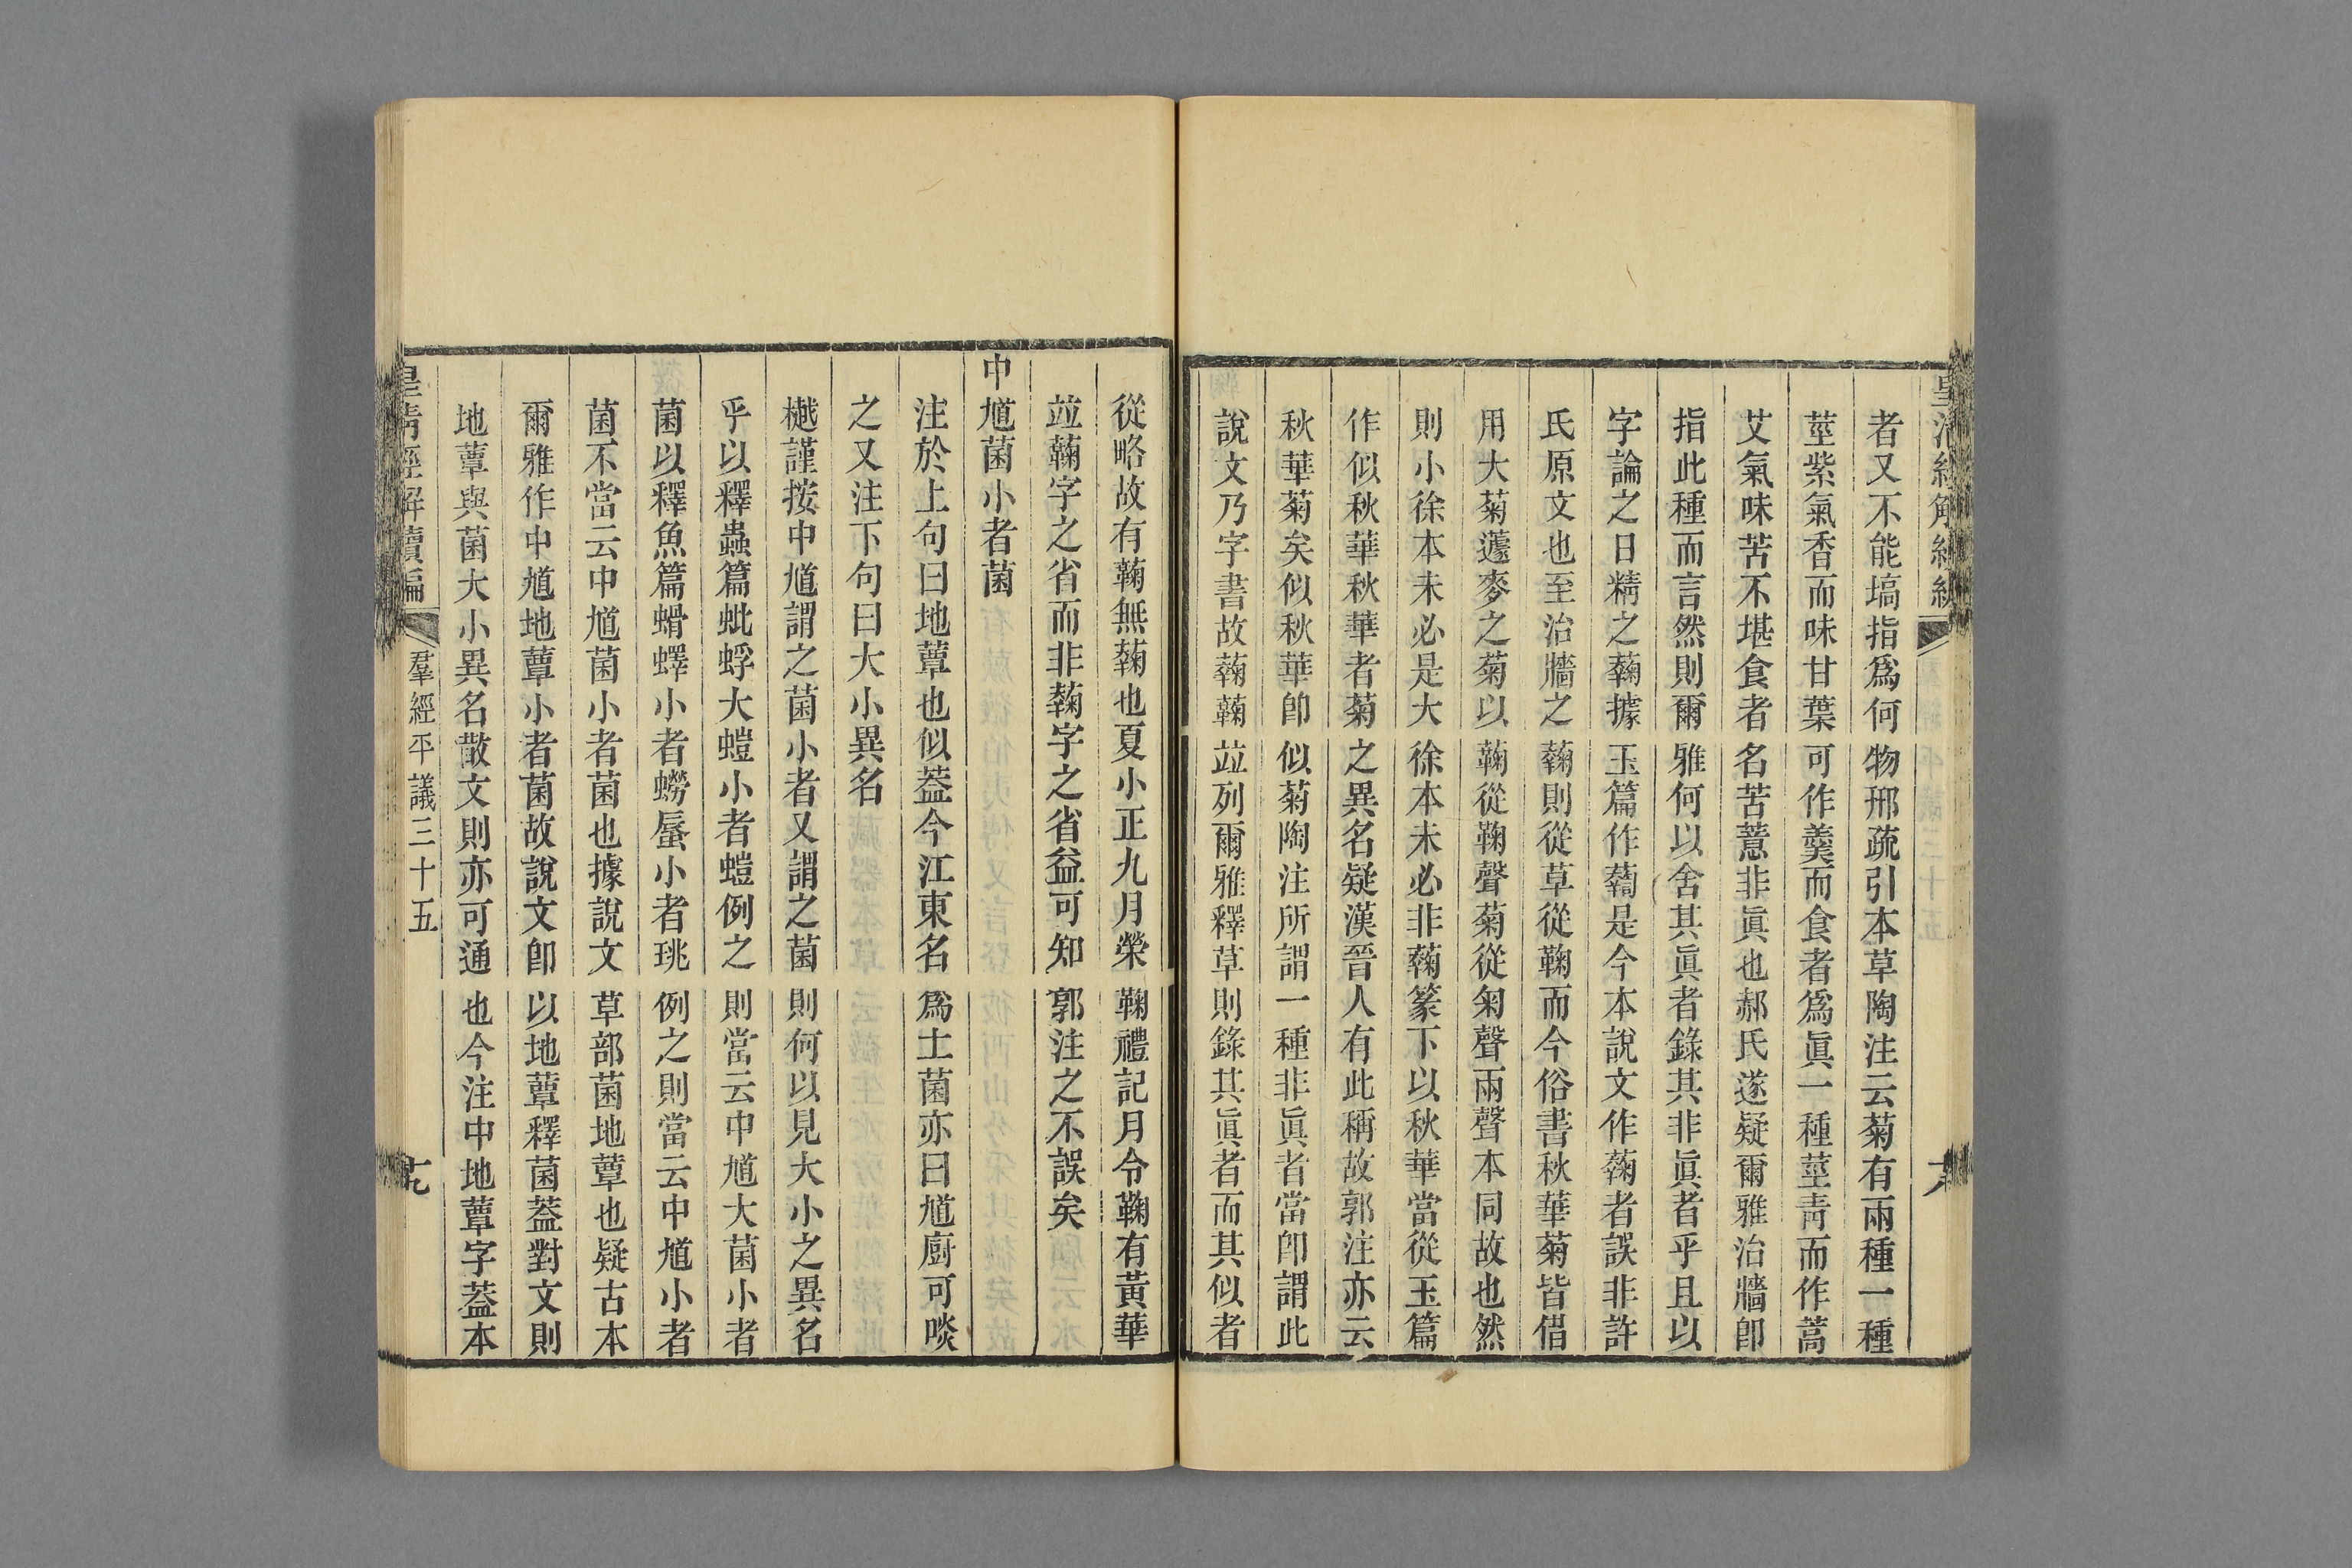 者又不能塙指爲何物邢疏引本草陶注云菊有兩種一種
莖紫氣香而味甘葉可作羹而食者爲眞一種莖靑而作蒿
艾氣味苦不堪食者名苦薏非眞也郝氏遂疑爾雅治牆卽
指此種而言然則爾雅何以舍其眞者錄其非眞者乎且以
字論之日精之蘜據玉篇作蘜是今本說文作蘜者誤非許
氏原文也至治牆之蘜則從草從鞠而今俗書秋華菊皆借
用大菊蘧麥之菊以蘜從鞠聲菊從匊聲兩聲本同故也然
則小徐本未必是大徐本未必非蘜篆下以秋華當從玉篇
作似秋華秋華者菊之異名疑漢晉人有此稱故郭注亦云
秋華菊矣似秋華卽似菊陶注所謂一種非眞者當卽謂此
說文乃字書故蘜蘜竝列爾雅釋草則錄其眞者而其似者
從略故有蘜無蘜也夏小正九月榮鞠禮記月令鞠有黃華
竝蘜字之省而非蘜字之省益可知郭注之不誤矣
中馗菌小者菌
注於上句曰地蕈也似蓋今江東名爲土菌亦曰馗廚可啖
之又注下句曰大小異名
樾謹按中馗謂之菌小者又謂之菌則何以見大小之異名
乎以釋蟲篇蚍蜉大螘小者螘例之則當云中馗大菌小者
菌以釋魚篇蝑蠌小者蟧蜃小者珧例之則當云中馗小者
菌不當云中馗菌小者菌也據說文草部菌地蕈也疑古本
爾雅作中馗地蕈小者菌故說文卽以地蕈釋菌蓋對文則
地蕈與菌大小異名散文則亦可通也今注中地蕈字蓋本
皇淸經解續編
羣經平議三十五